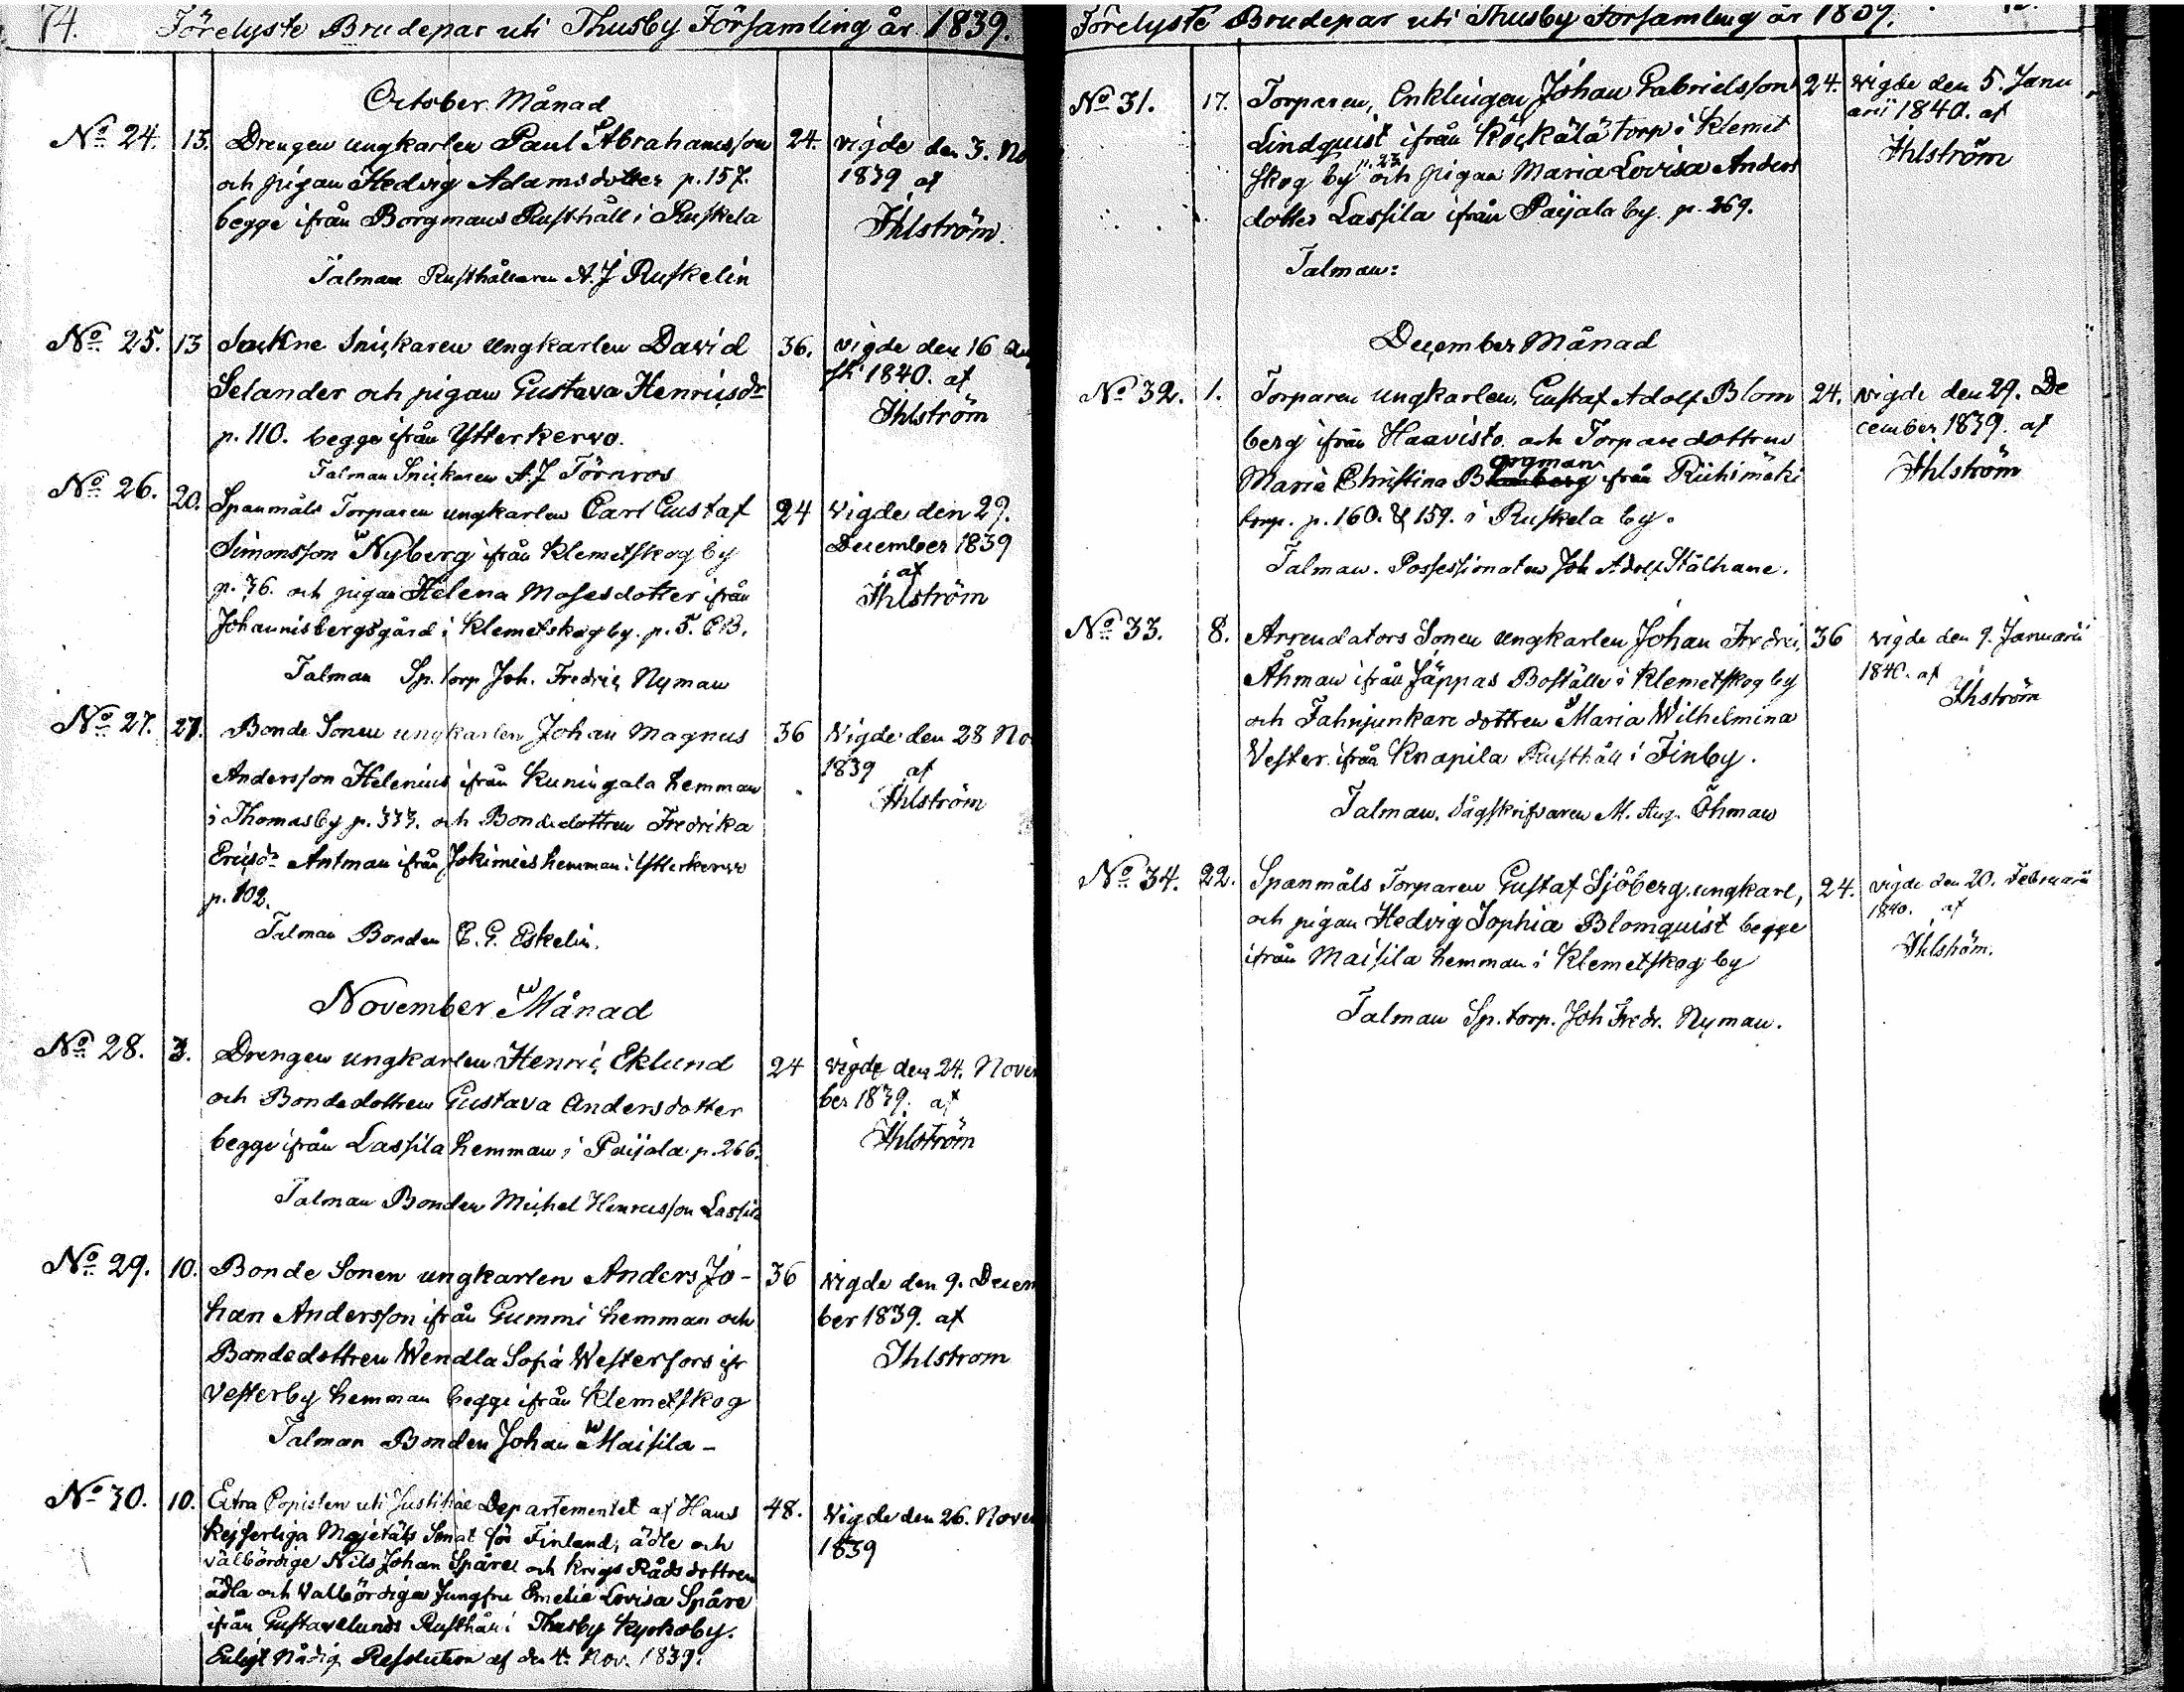 74. Förelyste Brudepar uti Thusby Församling år 1839.
October Månad
No 24. 13. Drengen ungkarlen Paul Abrahamsson 24. vigde den 3. No
och pigan Hedvig Adamsdotter p. 157. 1839 af
begge ifrån Borgmans Rusthåll i Ruskela Ihlström.
Talman Rusthållaren A. J Ruskelin
No 25. 13 Sockne Snickaren ungkarlen David 36. vigde den 16
Selander och pigan Gustava Henricsdr 1840. af
p. 110. begge ifrån Ytterkervo. Ihlström
Talman Snickaren A. J Törnros
No 26. 20. Spanmåls Torparen ungkarlen Carl Gustaf 24 Vigde den 29.
Simonsson Nyberg ifrån Klemetskog by December 1839
p. 36. och pigan Helena Mosesdotter ifrån af
Johannisbergsgård i Klemetskog by. p. 5. Ihlström
Talman Sp. torp Joh. Fredric Nyman
No 27. 27. Bonde Sonen ungkarlen Johan Magnus 36 Vigde den 28 No
Andersson Helenius ifrån Kuningala hemman 1839 af
i Thomasby p. 333. och Bondedottren Fredrika Ihlström
Ericsdr Antman ifrån Jokimies hemman i Ytterkervo
p. 102.
Talman Bonden E. G. Eskelin.
November Månad
No 28. 3. Drengen ungkarlen Henric Eklund 24 vigde den 24. Novem
och Bondedottren Gustava Andersdotter ber 1839. af
begge ifrån Lassila hemman i Paijala p. 266. Ihlström
Talman Bonden Michel Henricsson Lassila
No 29. 10. Bonde Sonen ungkarlen Anders Jo- 36 vigde den 9. Decem
han Andersson ifrån Gummi hemman och ber 1839. af
Bondedottren Wendla Sofia Westerfors ifr Ihlstrom
Vesterby hemman begge ifrån Klemetskog
Talman Bonden Johan Maisila -
No 30. 10. Extra Copisten uti Justitiæ Departementet af Hans 48. Vigde den 26. Novem
Kejserliga Majetäts Senat för Finland, ädle och 1839
välbördige Nils Johan Spåre och Krigs Råds dottren
ädla och Välbördiga Jungfru Emelie Lovisa Spåre
ifrån Gustavelunds Rusthåll i Thusby Kyrkoby.
Enligt Nådig Resolution af den 4. Nov. 1839.
Förelyste Brudepar uti Thusby Församling år 1839.
No 31. 17. Torparen, Enklingen Johan Gabrielsson 24. vigde den 5. Janu
Lindquist ifrån Köckälä torp i Klemet arii 1840. af
skog by p. 23. och pigan Maria Lovisa Anders Ihlström
dotter Lassila ifrån Paijala by. p. 269.
Talman:
December Månad
No 32. 1. Torparen ungkarlen, Gustaf Adolf Blom 24. vigde den 29. De
berg ifrån Haavisto och Torparedottren cember 1839. af
Maria Christina Borgman från Riihimäki Ihlström
torp. p. 160. & 159. i Ruskela by.
Talman. Possessionaten Joh Adolf Stålhane.
No 33. 8. Arrendators Sonen ungkarlen Johan Fredric 36 vigde den 9. Januarii
Åhman ifrån Jäppas Boställe i Klemetskog by 1840. af
och Fahnjunkare dottren Maria Wilhelmina Ihström
Vester ifrån Knapila Rusthåll i Finby.
Talman. Sågskrifvaren M. Aug. Öhman
No 34. 22. Spanmåls Torparen Gustaf Sjöberg, ungkarl, 24. vigde den 20. Februarii
och pigan Hedvig Sophia Blomquist begge 1840. af
ifrån Maisila hemman i Klemetskog by Ihlström.
Talman Sp. torp. Joh Fredr. Nyman.